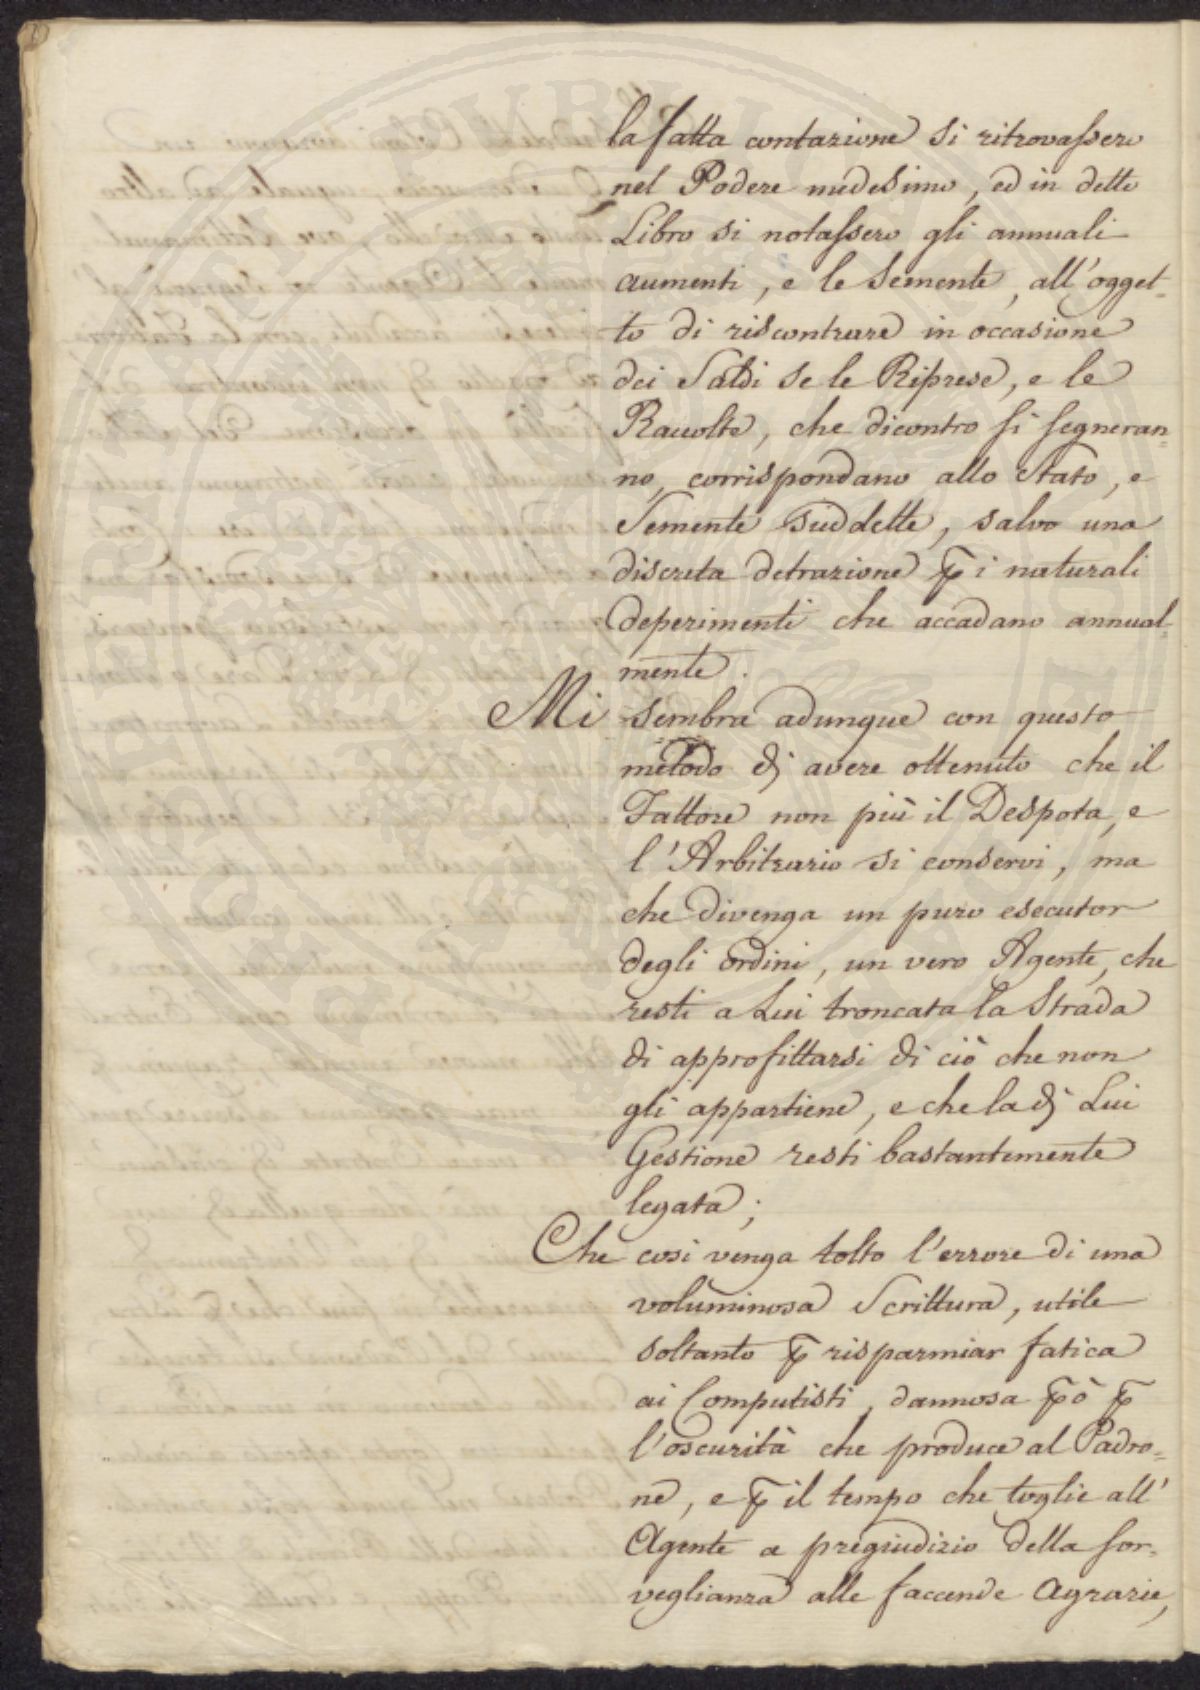 la fatta contazione si ritrovassero
nel Podere medesimo, ed in detto
Libro si notassero gli annuali
aumenti, e le Semente, all'ogget-
to di riscontrare in occasione
dei Saldi se le Riprese, e le
Raccolte, che dicontro si segneran=
no, corrispondano allo Stato, e
Semente suddette, salvo una
discreta detrazione ꝑ i naturali
deperimenti che accadano annual-
mente.
Mi sembra adunque con questo
metodo di avere ottenuto che il
Fattore non più il Despota, e
l'Arbitrario si conservi, ma
che divenga un puro esecutor
degli ordini, un vero Agente, che
resti a Lui troncata la Strada
di approfittarsi di ciò che non
gli appartiene, e che la di Lui
Gestione resti bastantemente
legata;
Che così venga tolto l'errore di una
voluminosa Scrittura, utile
soltanto ꝑ risparmiar fatica
ai Computisti, dannosa ꝑò ꝑ
l'oscurità che produce al Padro=
ne, e ꝑ il tempo che toglie all'
Agente a pregiudizio della sor-
veglianza alle faccende Agrarie,